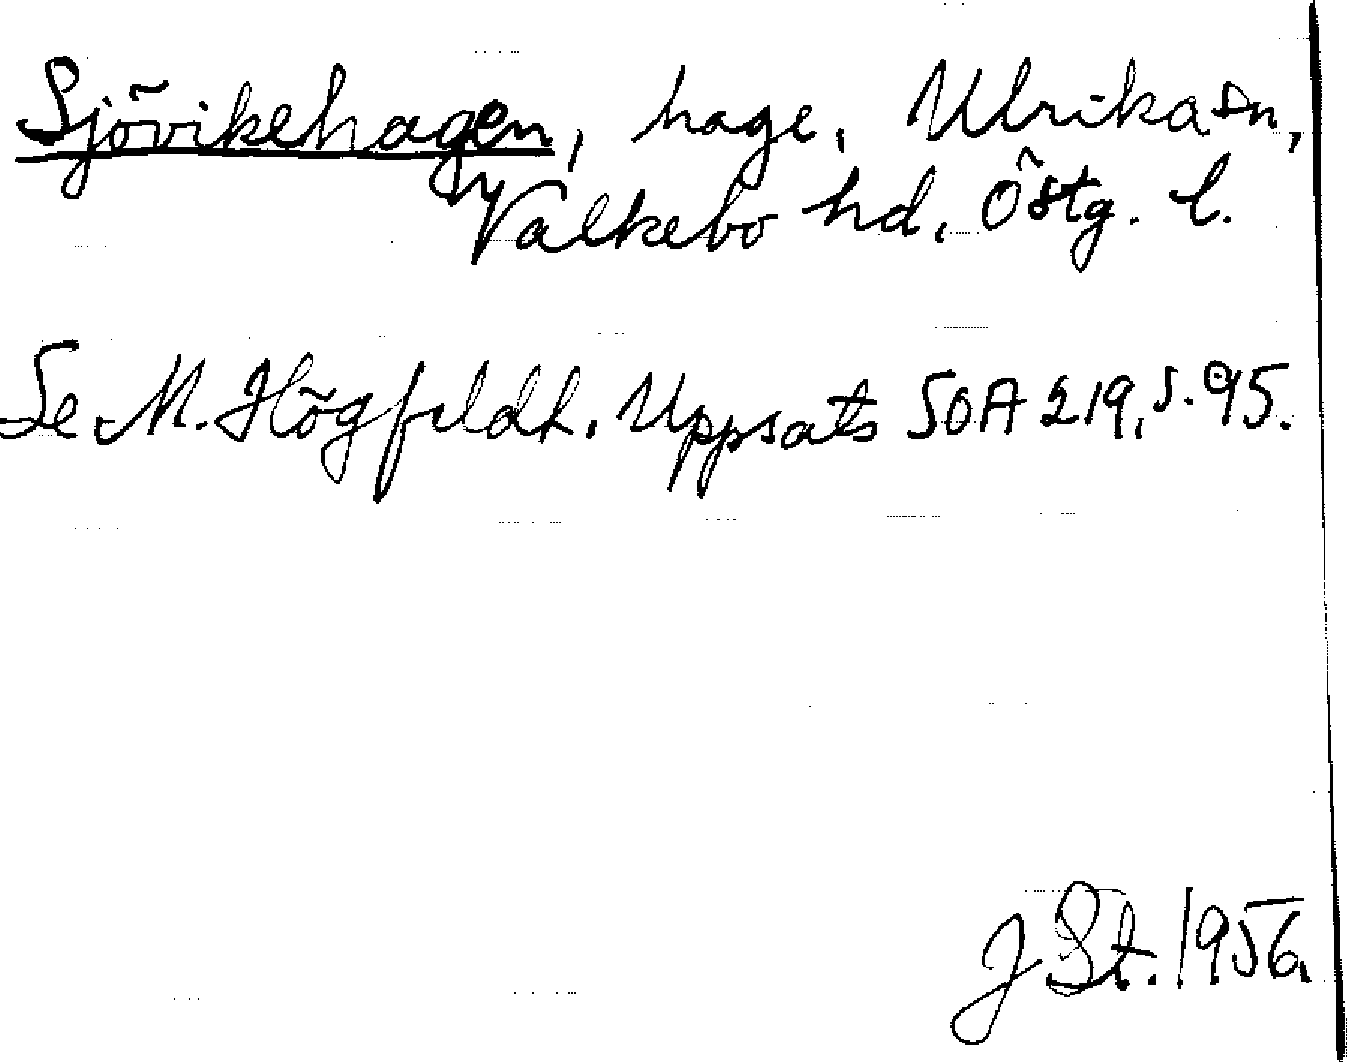 Sjövikehagen, hage, Ulrika sn,
Valkebo hd, Östg. l.
Se M. Högfeldt. Uppsats SOA 219, s. 95.
J St. 1956.